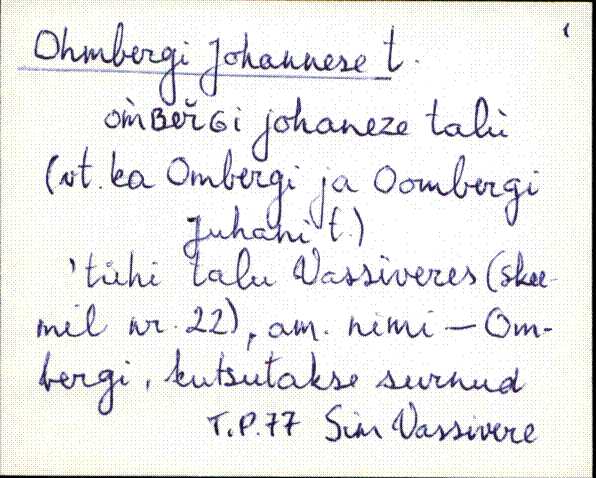 Ohmbergi Johannese t.
om̀ʙeřɢi johaneze talù
(vt. ka Ombergi ja Oombergi
Juhani t.)
'tühi talu Vassiveres (skee-
mil nr. 22), am. nimi – Om-
bergi, kutsutakse surnud
T.P.77 Sim Vassivere